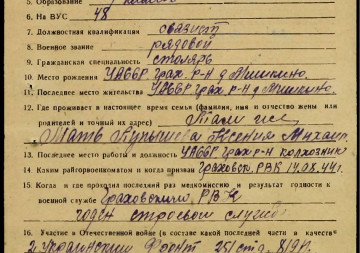 5. Образование
6. На ВУС 48
7. Должностная квалификация связист
8. Военное звание рядовой
9. Гражданская специальность столярь
10. Место рождения УАССР Грах. р-н д Мишкино.
11. Последнее место жительства УАССР Грах. р-н д Мишкино.
12. Где проживает в настоящее время семья (фамилия, имя и отчество жены или
родителей и точный их адрес) Там же
Мать Ксения Михаил.
13. Последнее место работы и должность УАССР Грах р-н колхозник
14. Каким райгорвоенкоматом и когда призван Граховск. РВК 14.08.44 г.
15. Когда и где проходил последний раз медкомиссию и результат годности к
военной службе Граховским РВК
годен строевой службе
16. Участие в Отечественной войне (в составе какой последней части и в качестве
2 Украинский Фронт 251 стд.